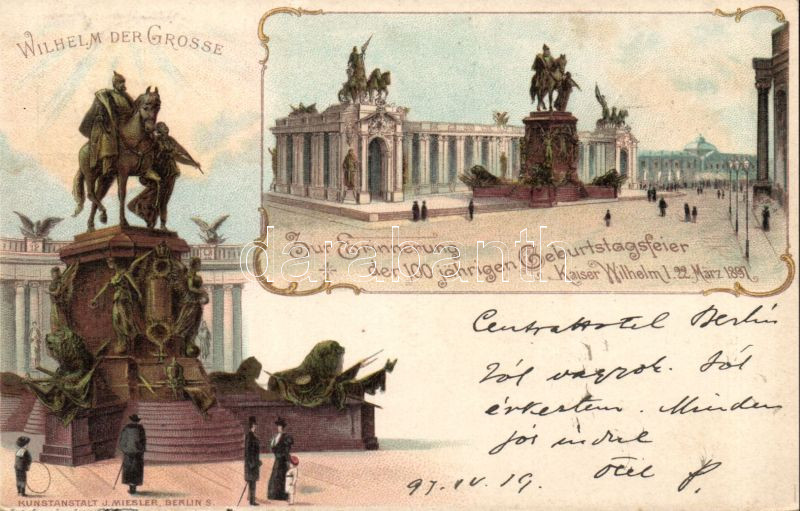 WILHELM DER GROSSE
Zur Erinnerung
der 100 jährigen Geburtstagsfeier
Kaiser Wilhelm I. 22. März 1897.
darabanth
Centralhotel Berlin
Jól vagyok. Jól
érkeztem. Minden
jól indul
97. IV. 19.
KUNSTANSTALT J. MIESLER, BERLIN S.